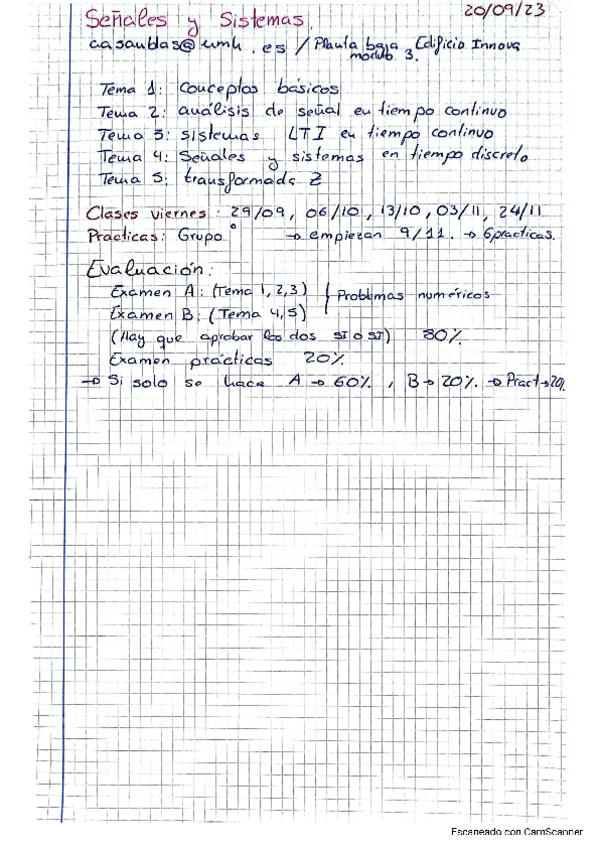 Señales y Sistemas. 20/09/23
casaublas@umh.es / Planta baja Edificio Innova
modulo 3.
Tema 1: Conceptos básicos
Tema 2: análisis de señal en tiempo continuo
Tema 3: sistemas LTI en tiempo continuo
Tema 4: Señales y sistemas en tiempo discreto
Tema 5: transformada Z
Clases viernes: 29/09, 06/10, 13/10, 03/11, 24/11
Practicas: Grupo ° → empiezan 9/11. → 6 practicas.
Evaluación:
Examen A: (Tema 1, 2, 3)
Problemas numéricos
Examen B: (Tema 4, 5)
(Hay que aprobar los dos SI o SI) 80%
Examen prácticas 20%
→ Si solo se hace A → 60%, B → 20%. → Pract → 20%.
Escaneado con CamScanner